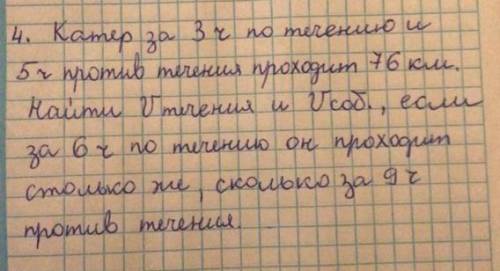 4. Катер за 3 ч по течению и
5 ч против течения проходит 76 км.
Найти Vтечения и Vсоб., если
за 6 ч по течению он проходит
столько же, сколько за 9 ч
против течения.